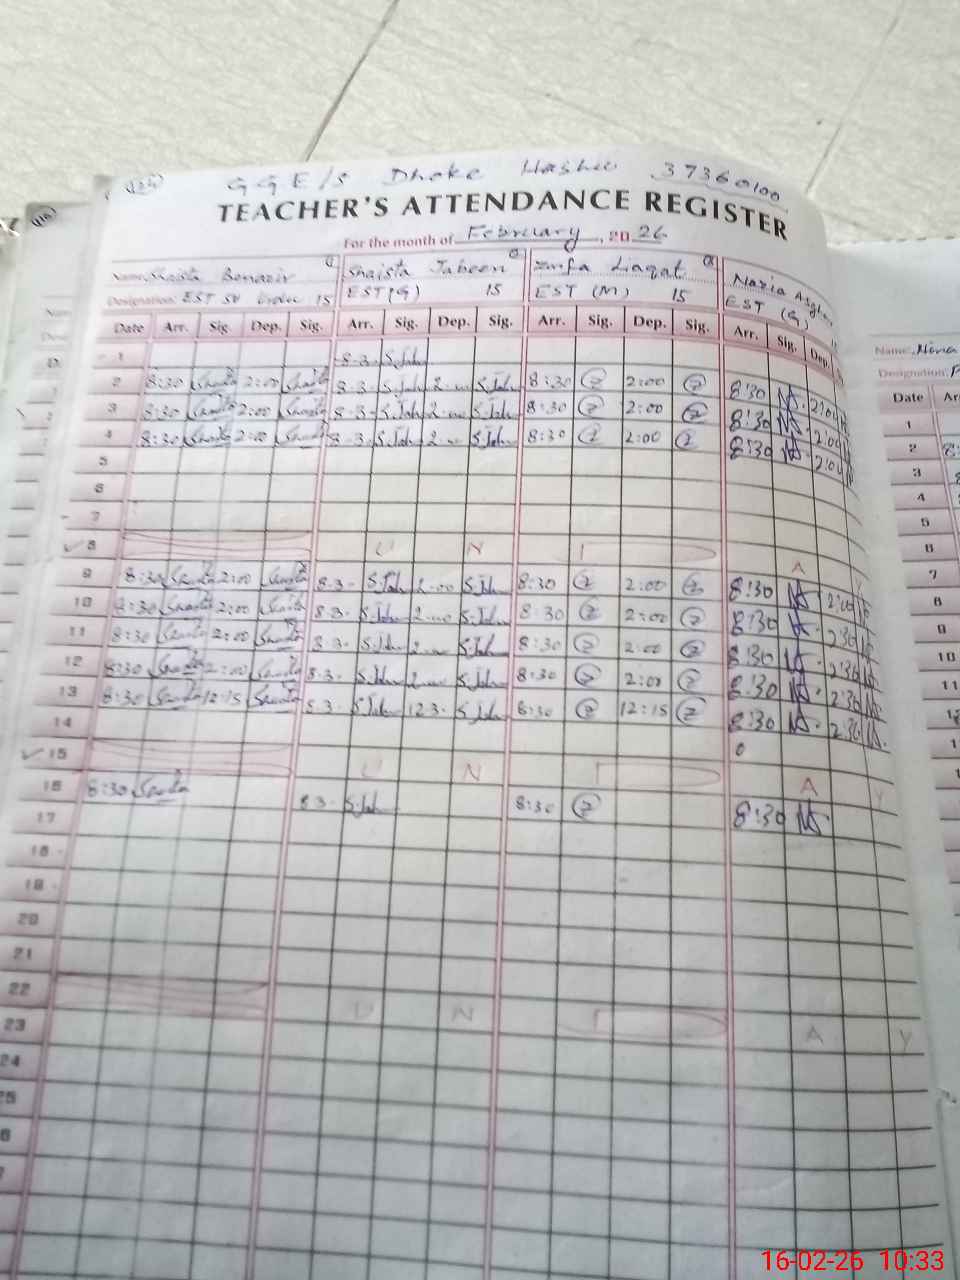 G G E/S Dhoke Hashu 37360100
TEACHER'S ATTENDANCE REGISTER
For the month of February, 20 26
Name: Shaista Benazir Shaista Jabeen Zulfa Liaqat Nazia Asghar
Designation: EST SV Urdu 15 EST (G) 15 EST (M) 15 EST (G)
Date Arr. Sig. Dep. Sig. Arr. Sig. Dep. Sig. Arr. Sig. Dep. Sig. Arr. Sig. Dep.
1 8-3- S.Jab
2 8:30 Shaista 2:00 Shaista 8-3- S.Jab 2-00 S.Jab 8:30 Z 2:00 Z 8:30 NA 2:00
3 8:30 Shaista 2:00 Shaista 8-3- S.Jab 2-00 S.Jab 8:30 Z 2:00 Z 8:30 NA 2:00
4 8:30 Shaista 2:00 Shaista 8-3- S.Jab 2-00 S.Jab 8:30 Z 2:00 Z 8:30 NA 2:00
5
6
7
8 S U N D A Y
9 8:30 Shaista 2:00 Shaista 8-3- S.Jab 2-00 S.Jab 8:30 Z 2:00 Z 8:30 NA 2:00
10 8:30 Shaista 2:00 Shaista 8-3- S.Jab 2-00 S.Jab 8:30 Z 2:00 Z 8:30 NA 2:30
11 8:30 Shaista 2:00 Shaista 8-3- S.Jab 2-00 S.Jab 8:30 Z 2:00 Z 8:30 NA 2:30
12 8:30 Shaista 2:00 Shaista 8-3- S.Jab 2-00 S.Jab 8:30 Z 2:00 Z 8:30 NA 2:30
13 8:30 Shaista 12:15 Shaista 8-3- S.Jab 12-3- S.Jab 8:30 Z 12:15 Z 8:30 NA 2:30 NA
14
15 U N A Y
16 8:30 Shaista 8-3- S.Jab 8:30 Z 8:30 NA
17
18
19
20
21
22 U N A Y
23
24
25
Name:
Designation:
Date
1
2
3
4
5
6
7
8
9
10
11
16-02-26 10:33